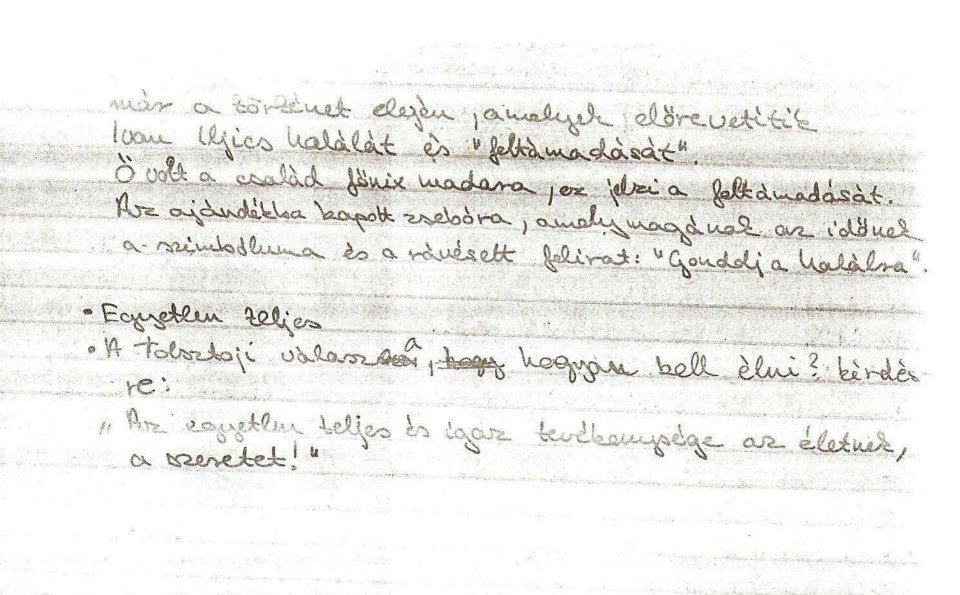 már a történet elején, amelyek előrevetítik
Ivan Iljics halálát és "feltámadását".
Ő volt a család főnix madara, ez jelzi a feltámadását.
Az ajándékba kapott zsebóra, amely magának az időnek
a szimbóluma és a rávésett felirat: "Gondolj a halálra".
• Egyetlen teljes
• A Tolsztoji válasz a, hogy hogyan kell élni? kérdés
re:
„Az egyetlen teljes és igaz tevékenysége az életnek,
a szeretet!"